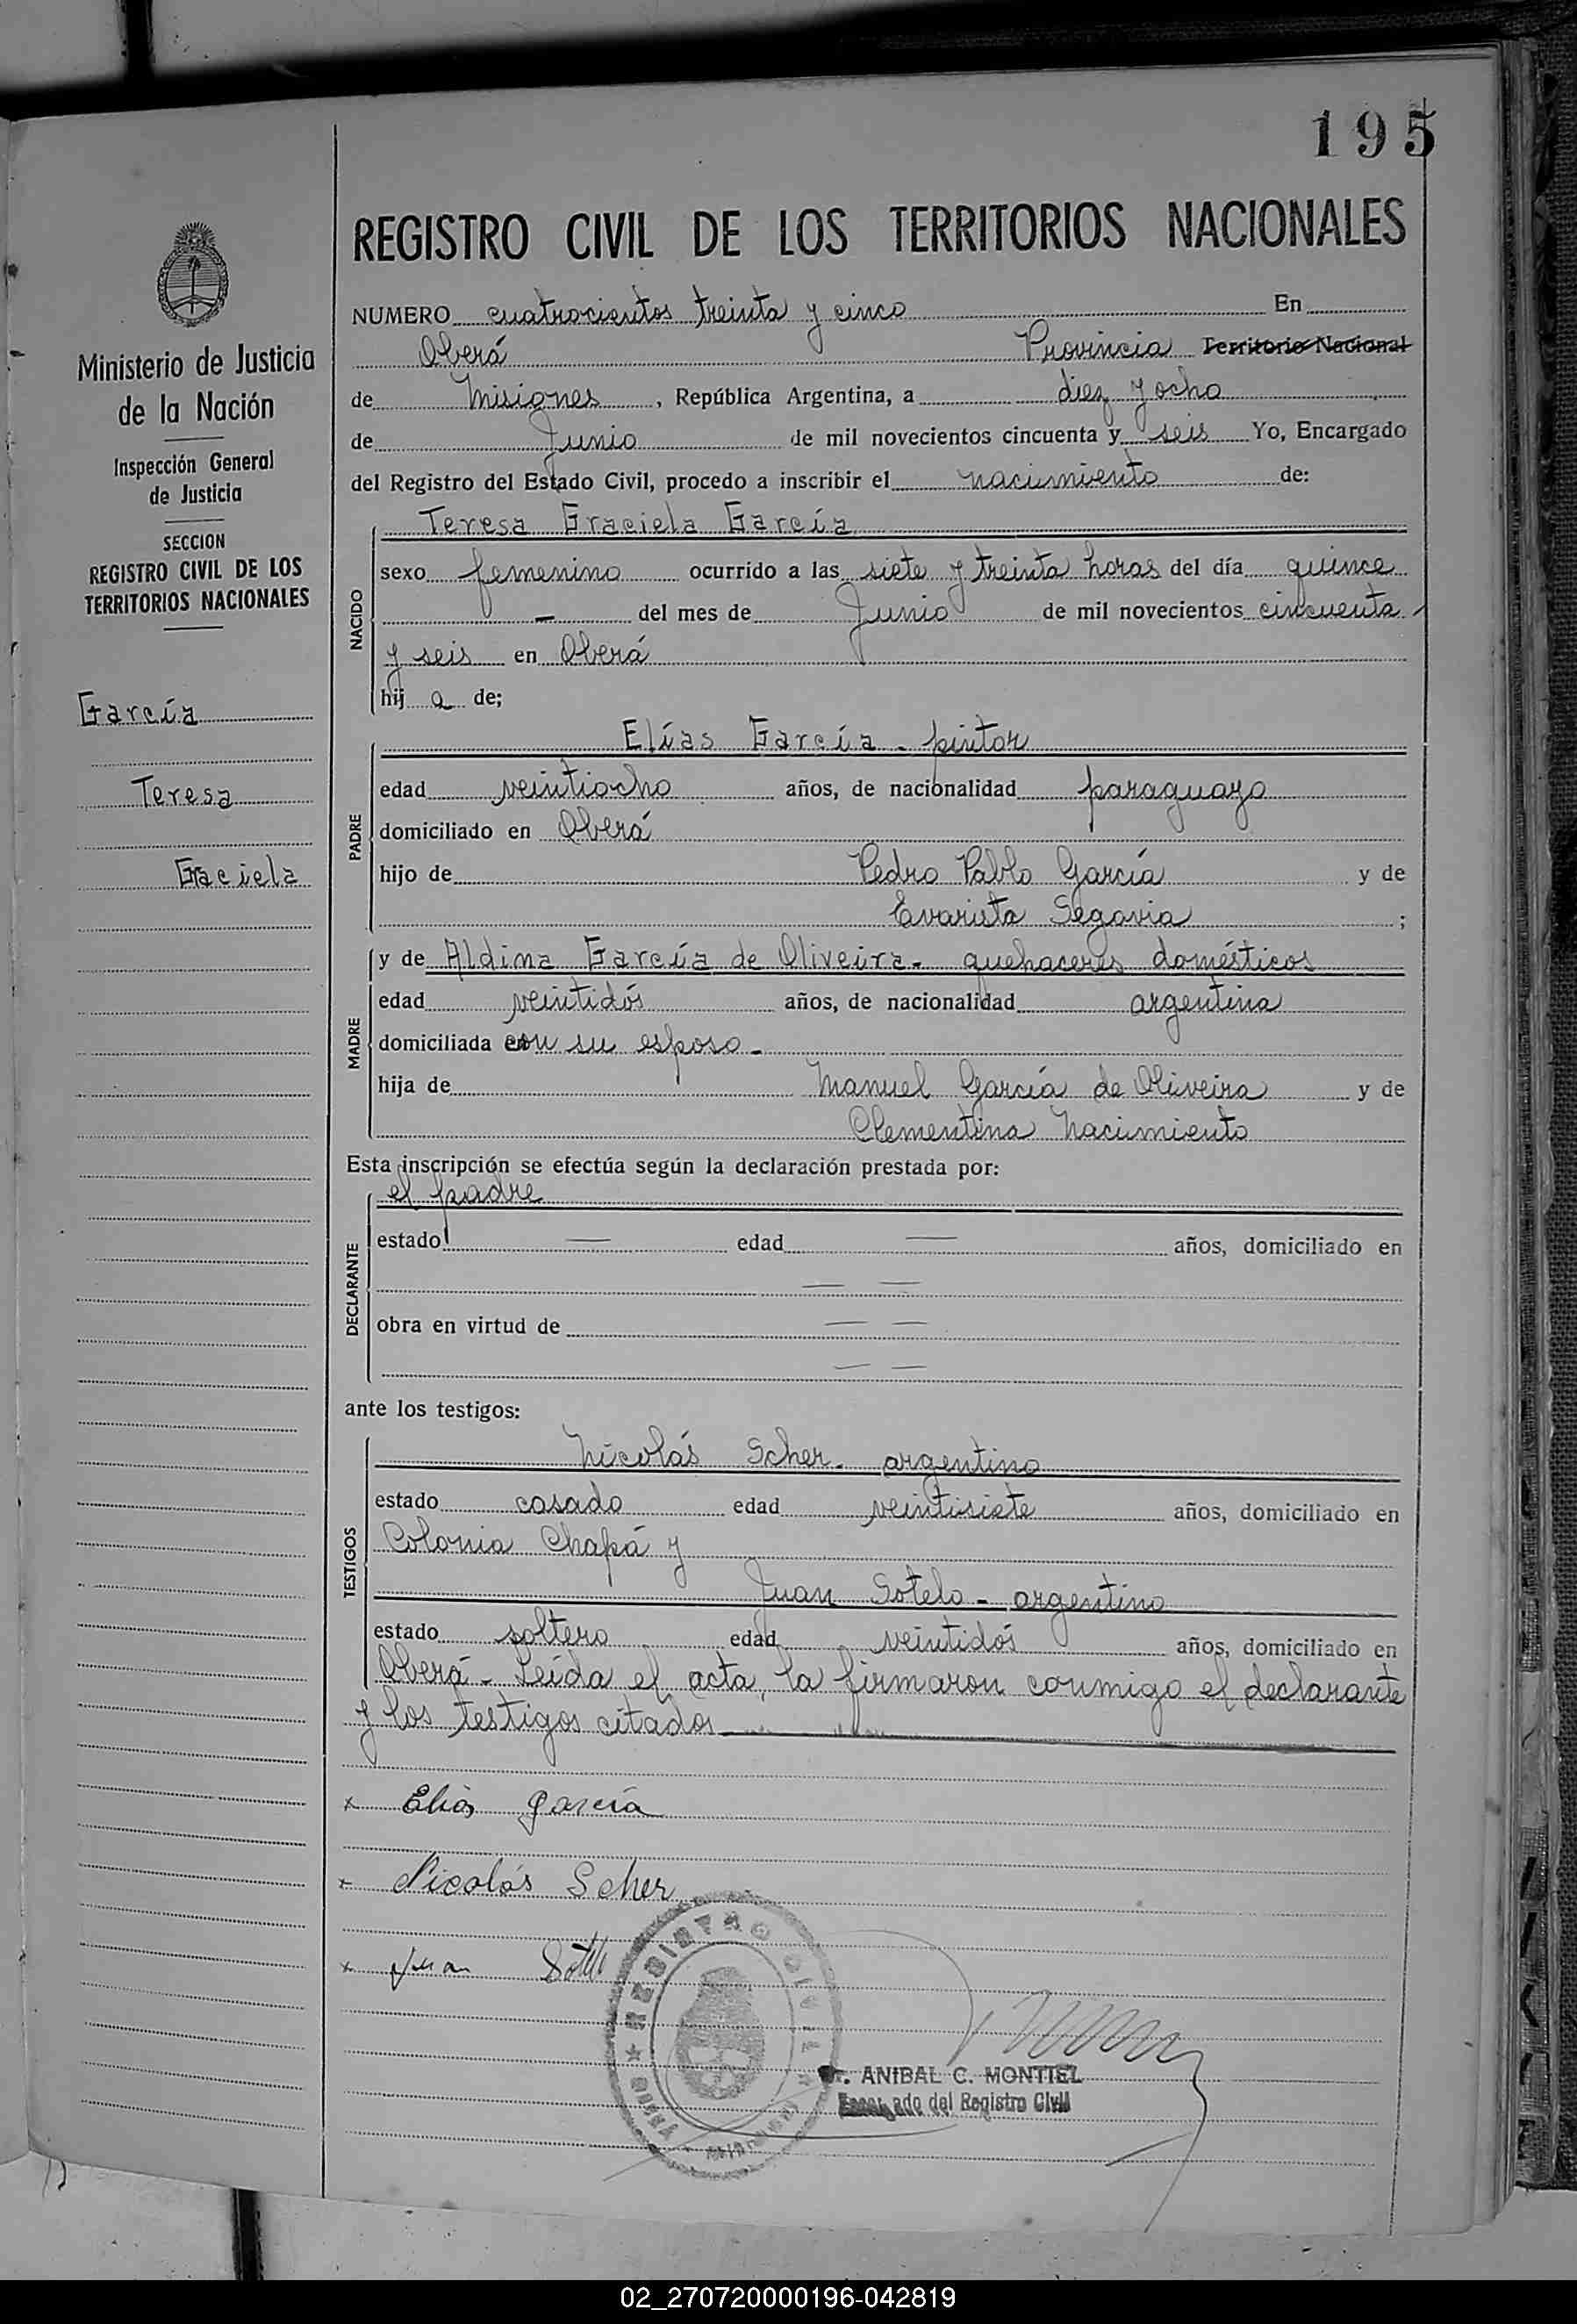 195
REGISTRO CIVIL DE LOS TERRITORIOS NACIONALES
Ministerio de Justicia
de la Nación
Inspección General
de Justicia
SECCION
REGISTRO CIVIL DE LOS
TERRITORIOS NACIONALES
García
Teresa
Graciela
NUMERO cuatrocientos treinta y cinco En
Oberá Provincia Territorio Nacional
de Misiones, República Argentina, a diez y ocho
de Junio de mil novecientos cincuenta y seis Yo, Encargado
del Registro del Estado Civil, procedo a inscribir el nacimiento de:
NACIDO
Teresa Graciela García
sexo femenino ocurrido a las siete y treinta horas del día quince
— del mes de Junio de mil novecientos cincuenta
y seis en Oberá
hij a de;
PADRE
Elías García - pintor
edad veintiocho años, de nacionalidad paraguayo
domiciliado en Oberá
hijo de Pedro Pablo García y de
Evarista Segovia ;
MADRE
y de Aldina García de Oliveira - quehaceres domésticos
edad veintidós años, de nacionalidad argentina
domiciliada con su esposo -
hija de Manuel García de Oliveira y de
Clementina Nacimiento
Esta inscripción se efectúa según la declaración prestada por:
DECLARANTE
el padre
estado — edad — años, domiciliado en
— —
obra en virtud de — —
— —
ante los testigos:
TESTIGOS
Nicolás Scher - argentino
estado casado edad veintisiete años, domiciliado en
Colonia Chapá y
Juan Sotelo - argentino
estado soltero edad veintidós años, domiciliado en
Oberá - Leída el acta, la firmaron conmigo el declarante
y los testigos citados
x Elías García
x Nicolás Scher
x Juan Sotelo
REGISTRO CIVIL
OBERÁ
ANIBAL C. MONTIEL
Encargado del Registro Civil
02_270720000196-042819